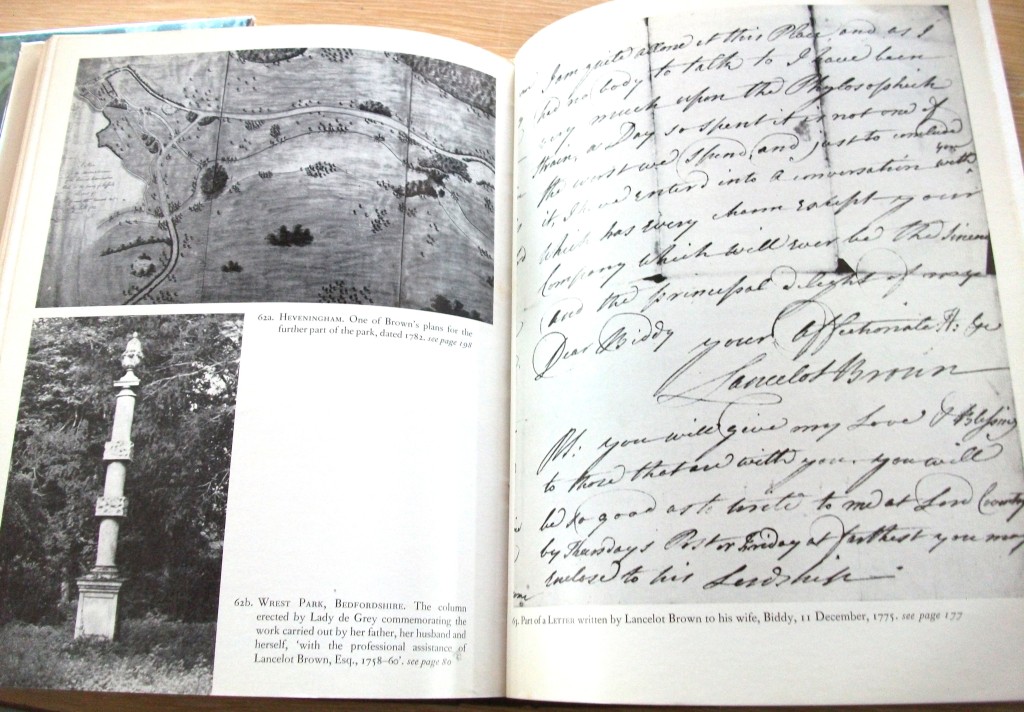 62a. HEVENINGHAM. One of Brown's plans for the
further part of the park, dated 1782. see page 198
62b. WREST PARK, BEDFORDSHIRE. The column
erected by Lady de Grey commemorating the
work carried out by her father, her husband and
herself, 'with the professional assistance of
Lancelot Brown, Esq., 1758–60'. see page 80
I am quite alone at this Place and as I
had no body to talk to I have been
very much upon the Phylosophick
Strain, a Day so spent it is not one of
the worst we spend, and just to conclude
it, I have enterd into a conversation with you
which has Every charm Except your
Company which will Ever be the Sincere
and the principal delight of
Dear Biddy
your affectionate H: &c
Lancelot Brown
PS: you will give my Love & Blessing
to those that are with you. you will
be so good as to write to me at Lord
by Thursdays Post or Friday at farthest you may
Enclose to his Lordship
Part of a LETTER written by Lancelot Brown to his wife, Biddy, 11 December, 1775. see page 177